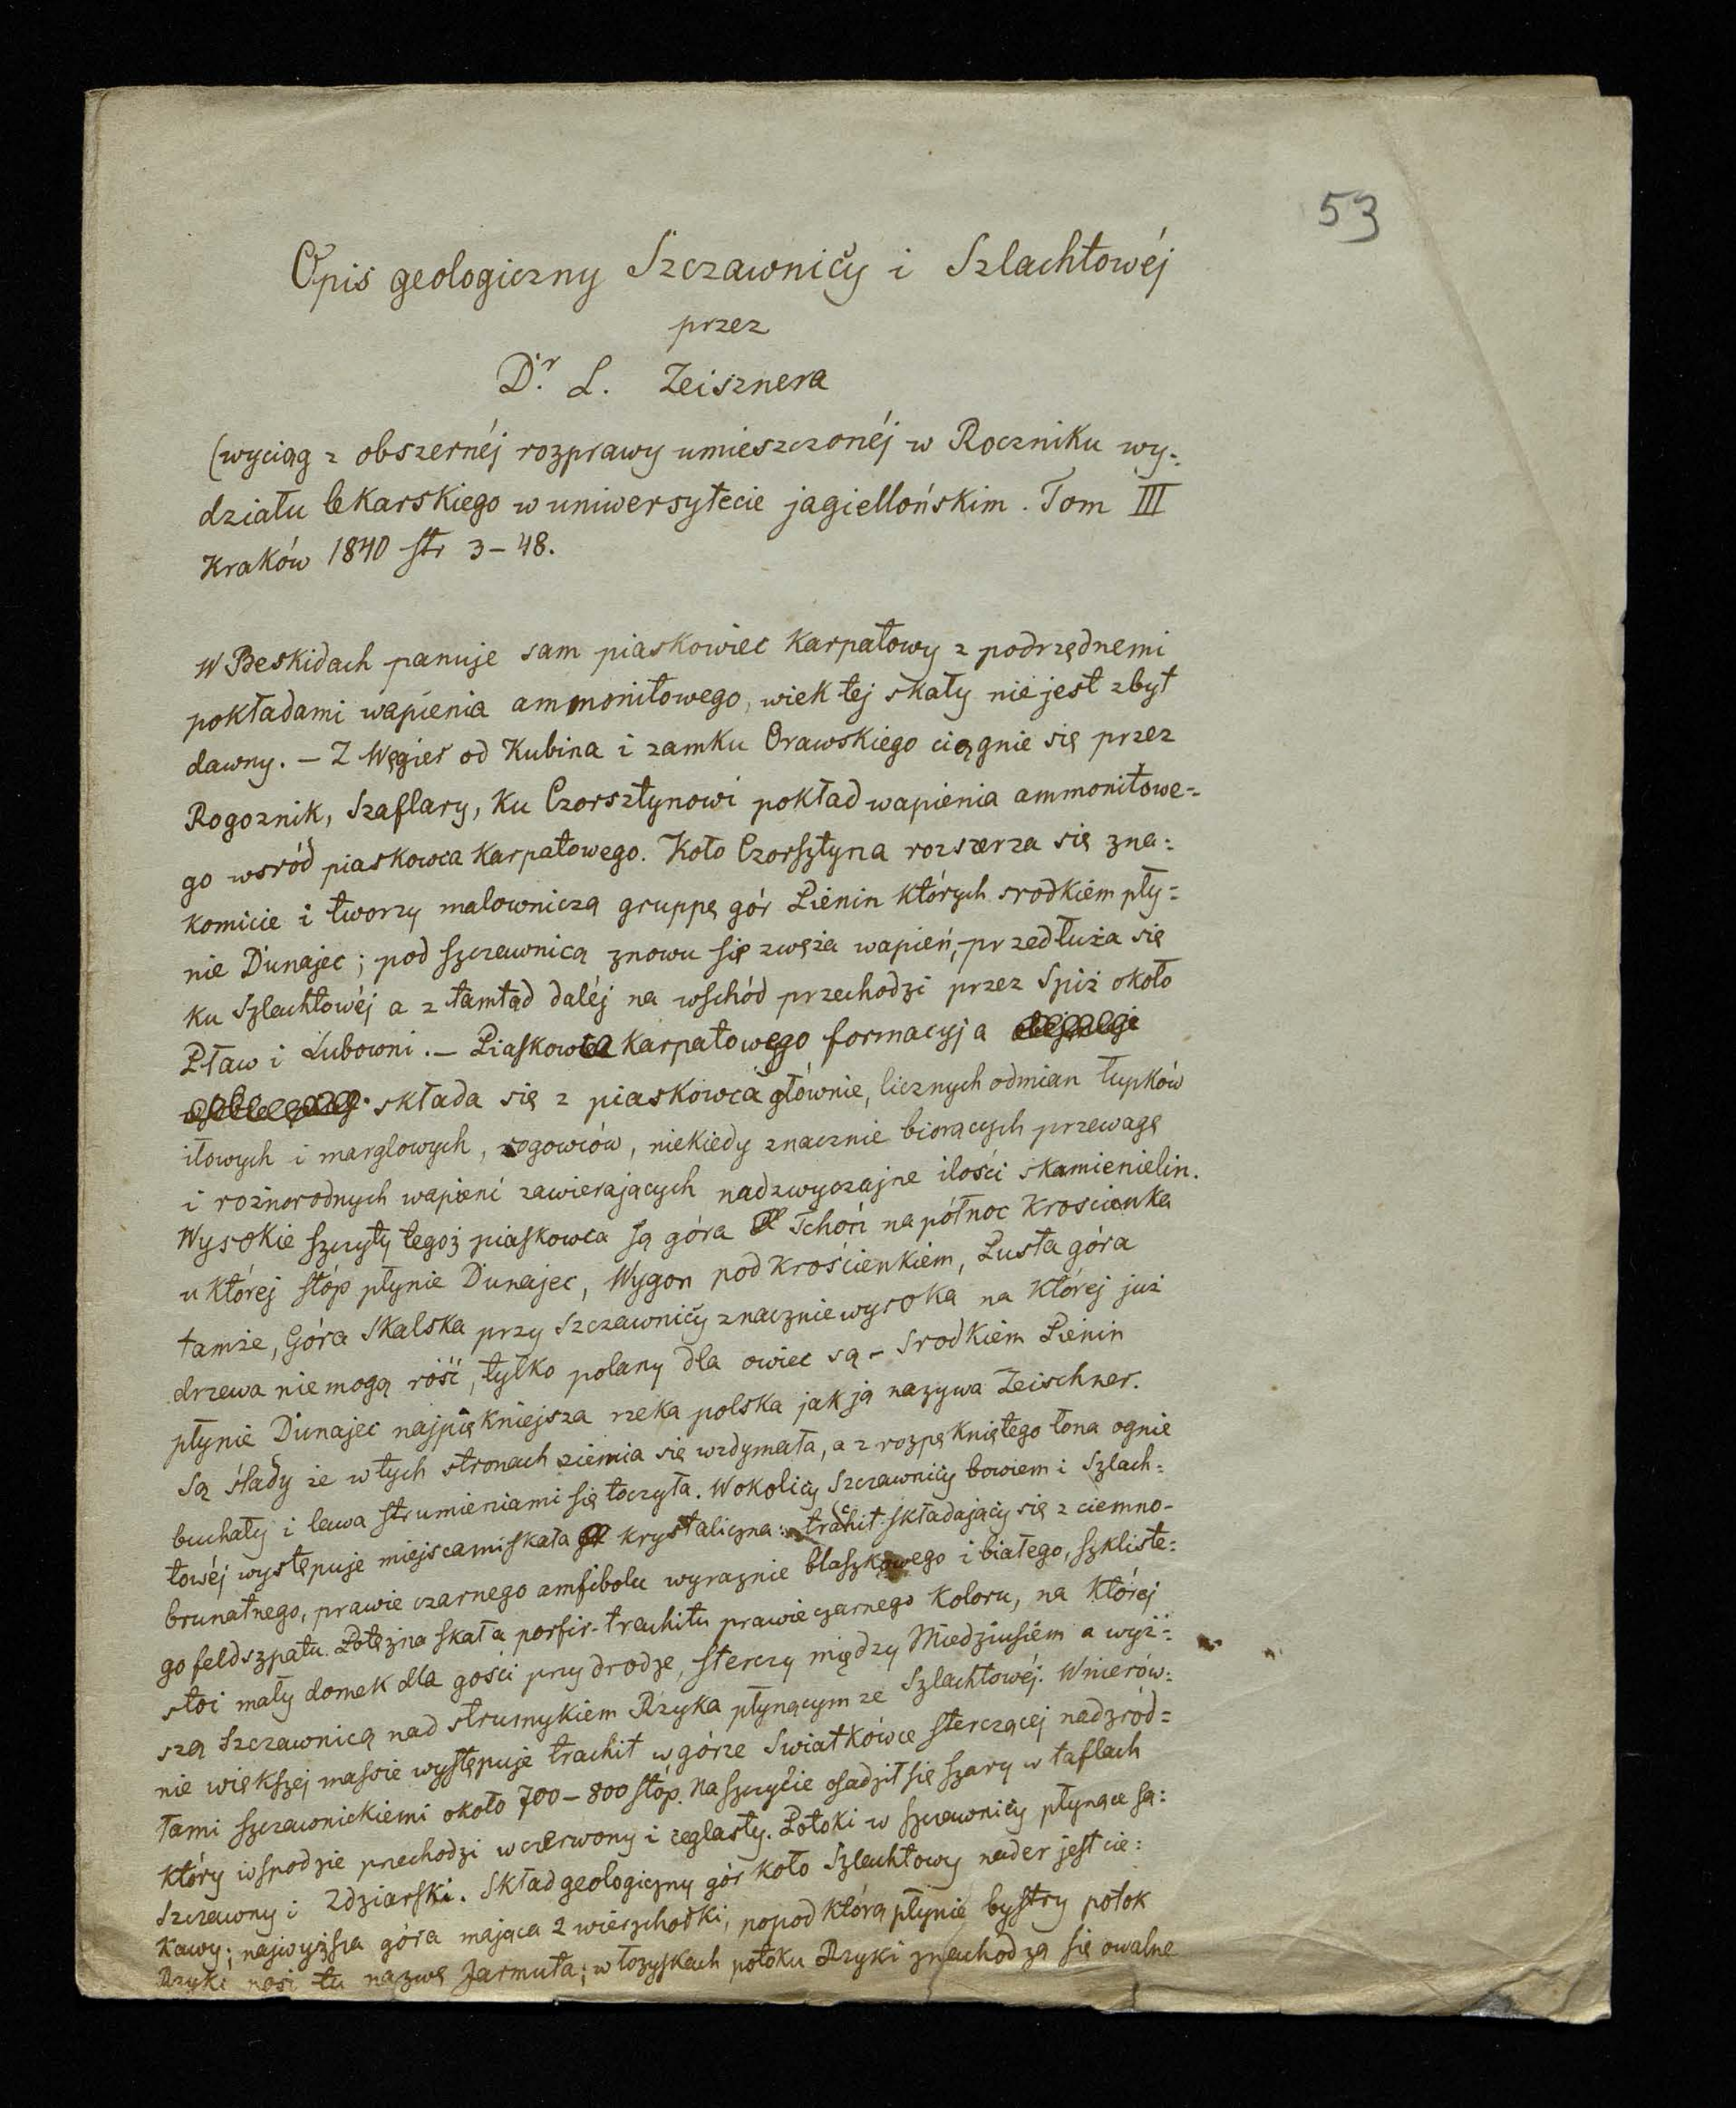 53
Opis geologiczny Szczawnicy i Szlachtowéj
przez
Dr. L. Zeisznera
(wyciąg z obszernéj rozprawy umieszczonéj w Roczniku wy-
działu lekarskiego w uniwersytecie jagiellońskim. Tom III
Kraków 1840 str 3-48.
W Beskidach panuje sam piaskowiec karpatowy z podrzędnemi
pokładami wapienia ammonitowego, wiek tej skały nie jest zbyt
dawny. - Z Węgier od Kubina i zamku Orawskiego ciągnie się przez
Rogoznik, Szaflary, ku Czorsztynowi pokład wapienia ammonitowe=
go wsród piaskowca karpatowego. Koło Czorsztyna rozszerza się zna=
komicie i tworzy malowniczą gruppę gór Pienin których srodkiem pły=
nie Dunajec; pod Szczawnicą znowu się zwęża wapień, przedłuża się
ku Szlachtowéj a z tamtąd daléj na wschód przechodzi przez Spiż około
Pław i Lubowni. - Piaskowca karpatowego formacyja
składa się z piaskowca głównie, licznych odmian łupków
iłowych i marglowych, rogowców, niekiedy znacznie biorących przewagę
i roznorodnych wapieni zawierających nadzwyczajne ilości skamienielin.
Wysokie szczyty tegoż piaskowca są góra Tchoń na północ Kroscienka
u której stóp płynie Dunajec, Wygon pod Krościenkiem, Pusta góra
tamże, Góra Skalska przy Szczawnicy znacznie wysoka na której już
drzewa nie mogą róść, tylko polany dla owiec są - Srodkiem Pienin
płynie Dunajec najpiękniejsza rzeka polska jak ją nazywa Zeischner.
Są ślady że w tych stronach ziemia się wzdymała, a z rozpękniętego łona ognie
buchały i lawa strumieniami się toczyła. W okolicy Szczawnicy bowiem i Szlach=
towéj występuje miejscami skała krystaliczna: trachit składający się z ciemno-
brunatnego, prawie czarnego amfibolu wyraznie blaszkowego i białego, szkliste=
go feldszpatu. Potężna skała porfir-trachitu prawie czarnego koloru, na której
stoi mały domek dla gości przy drodze, sterczy między Miedziusiem a wyż=
szą Szczawnicą nad strumykiem Rzyka płynącym ze Szlachtowéj. W nierów=
nie większej massie występuje trachit w górze Swiatkówce sterczącej nad zród=
łami szczawnickiemi około 700-800 stóp. Na szczycie osadził się szary w taflach
który w spodzie przechodzi w czerwony i ceglasty. Potoki w Szczawnicy płynące są:
Szczawny i Zdziarski. Skład geologiczny gór koło Szlachtowy nader jest cie=
kawy; najwyższa góra mająca 2 wierzchołki, popod którą płynie bystry potok
Rzyki nosi tu nazwę Jarmuta; w łożyskach potoku Rzyki znachodzą się owalne